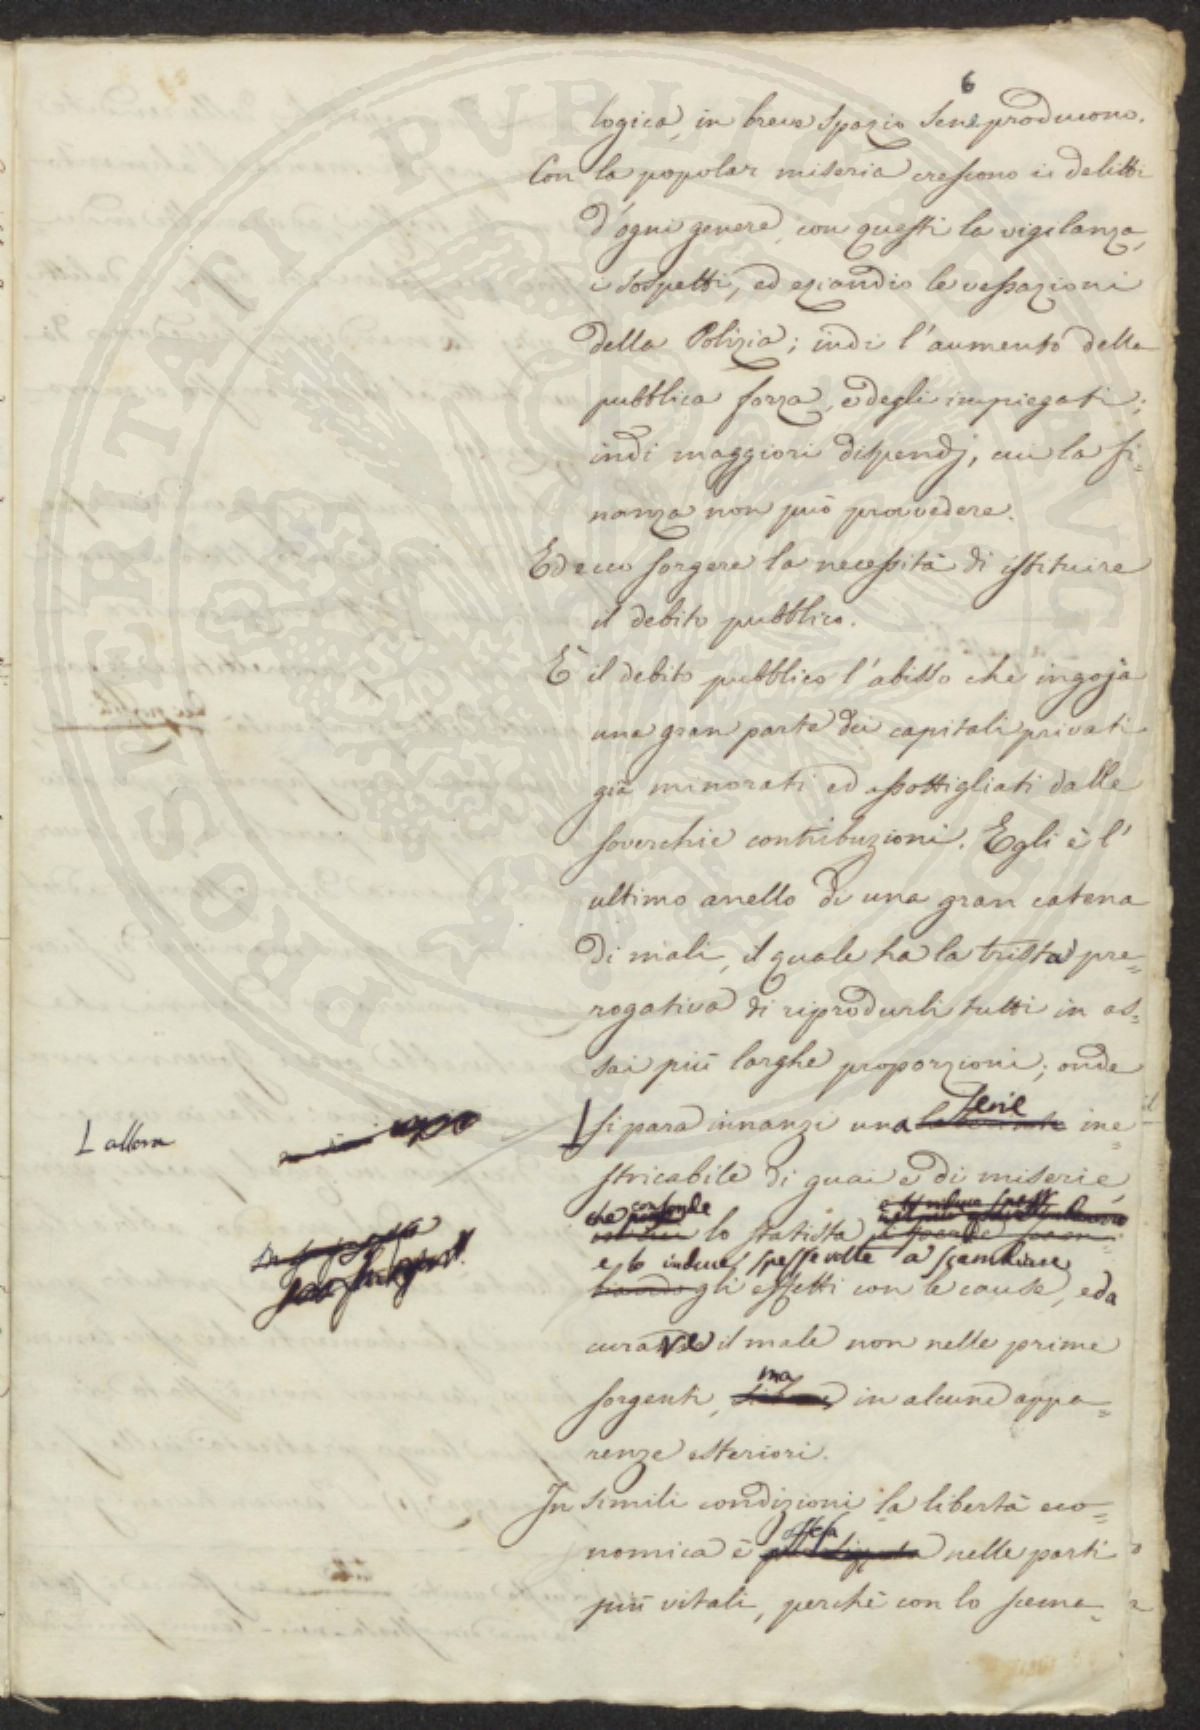 6
logica, in breve spazio sene producono.
Con la popolar miseria crescono i delitti
d'ogni genere, con questi la vigilanza,
i sospetti, ed eziandio le vessazioni
della Polizia; indi l'aumento della
pubblica forza, e degli impiegati;
indi maggiori dispendj, cui la fi=
nanza non può provvedere.
Ed ecco sorgere la necessità di istituire
il debito pubblico.
È il debito pubblico l'abisso che ingoja
una gran parte dei capitali privati
già minorati ed assottigliati dalle
soverchie contribuzioni. Egli è l'
ultimo anello di una gran catena
di mali, il quale ha la trista pre=
rogativa di riprodurli tutti in as=
sai più larghe proporzioni; onde
L allora
serie
L si para innanzi una laberinto ine=
stricabile di guai e di miserie,
che confonde
lo statista
e lo induce spesse volte a scambiare
gli effetti con le cause, e da
curare il male non nelle prime
ma
sorgenti, in alcune appa=
renze esteriori.
In simili condizioni la libertà eco=
offesa
nomica è nelle parti
più vitali, perchè con lo scema=
PROSPERITATI PVBLICAE AVGENDAE